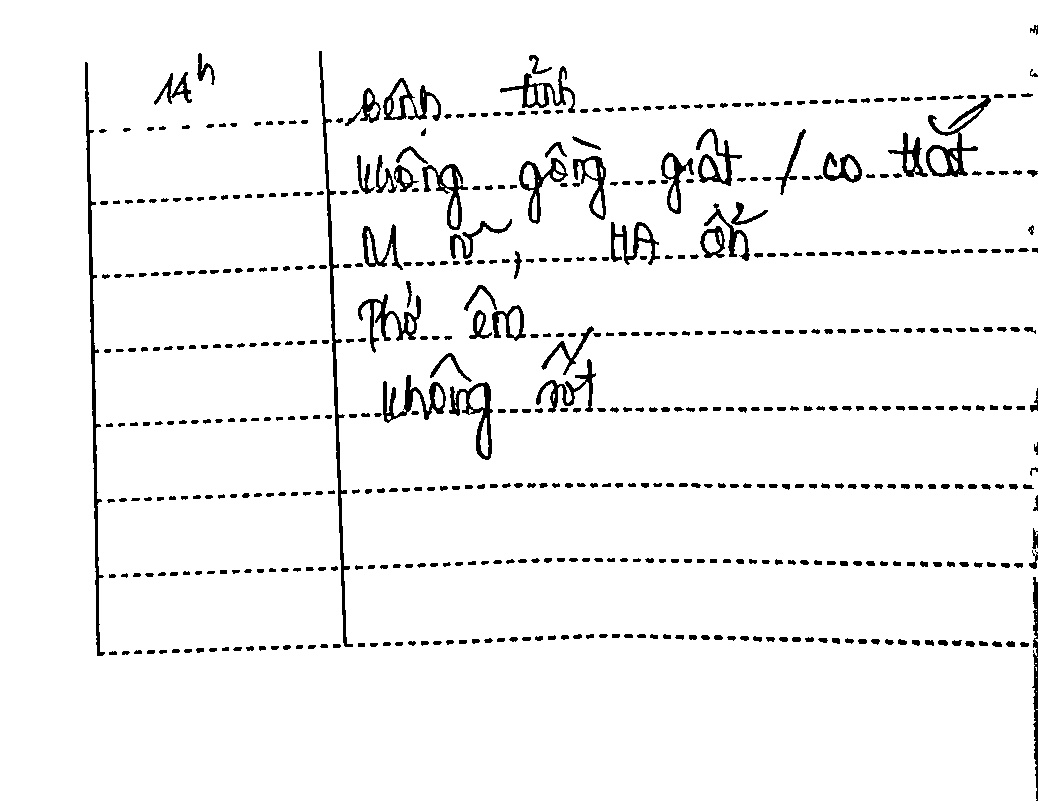 14h Bệnh tỉnh
Không gồng giật / co thắt
M rõ, HA ổn
Thở êm
Không sốt